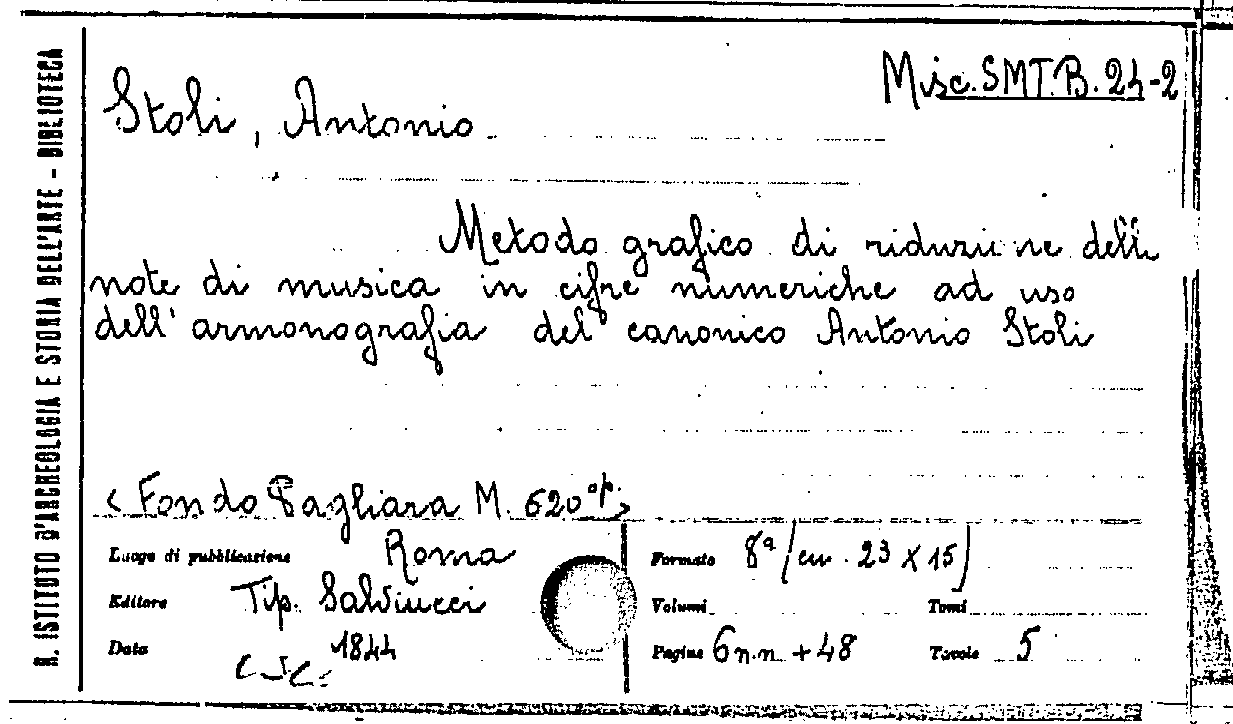 R. ISTITUTO D'ARCHEOLOGIA E STORIA DELL'ARTE - BIBLIOTECA
Misc. SMT.B. 24-2
Stoli, Antonio
Metodo grafico di riduzione delle
note di musica in cifre numeriche ad uso
dell'armonografia del canonico Antonio Stoli
< Fondo Pagliara M. 620 op. >
Luogo di pubblicazione Roma
Formato 8ª (cm. 23 X 15)
Editore Tip. Salviucci
Volumi Tomi
Data 1844
Pagine 6 n.n + 48 Tavole 5